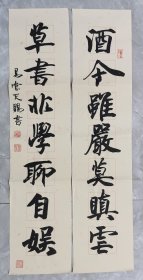 酒令雖嚴莫瞋雲
草書非學聊自娛